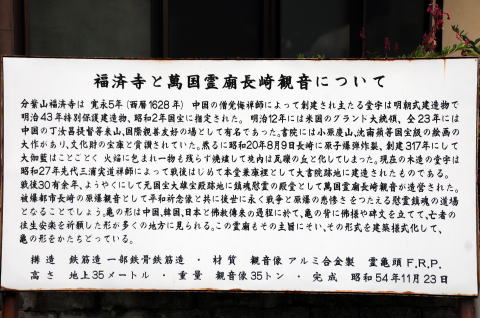 福済寺と萬国霊廟長崎観音について
分紫山福済寺は 寛永5年(西暦1628年) 中国の僧覚悔禅師によって創建され主たる堂宇は明朝式建造物で
明治43年特別保護建造物、昭和2年国宝に指定された。 明治12年には米国のグラント大統領、全23年には
中国の丁汝昌提督等来山、国際親善友好の場として有名であった。書院には小原慶山、沈南蘋等国宝級の絵画の
大作があり、文化財の宝庫と賞讃されていた。然るに昭和20年8月9日長崎に原子爆弾炸裂、創建317年にして
大伽藍はことごとく 火焔に包まれ一物も残らず焼滅して境内は瓦礫の丘と化してしまった。現在の木造の堂宇は
昭和27年先代三浦実道禅師によって戦後はじめて本堂兼庫裡として大書院跡地に建造されたものである。
戦後30有余年、ようやくにして元国宝大雄宝殿跡地に鎮魂慰霊の殿堂として萬国霊廟長崎観音が造営された。
被爆都市長崎の原爆観音として平和祈念像と共に後世に永く戦争と原爆の悲惨さをつたえる慰霊鎮魂の道場
となることでしょう。亀の形は中国、韓国、日本と佛教傳来の過程に於て、亀の背に佛様や碑文を立てて、亡者の
往生安楽を祈願した形が多くの地方に見られる。この霊廟もその主旨にそい、その形式を建築様式化して、
亀の形をかたちどっている。
構造 鉄筋造 一部鉄骨鉄筋造 ・ 材質 観音像 アルミ合金製 霊亀頭 F.R.P.
高さ 地上35メートル ・ 重量 観音像35トン ・ 完成 昭和54年11月23日